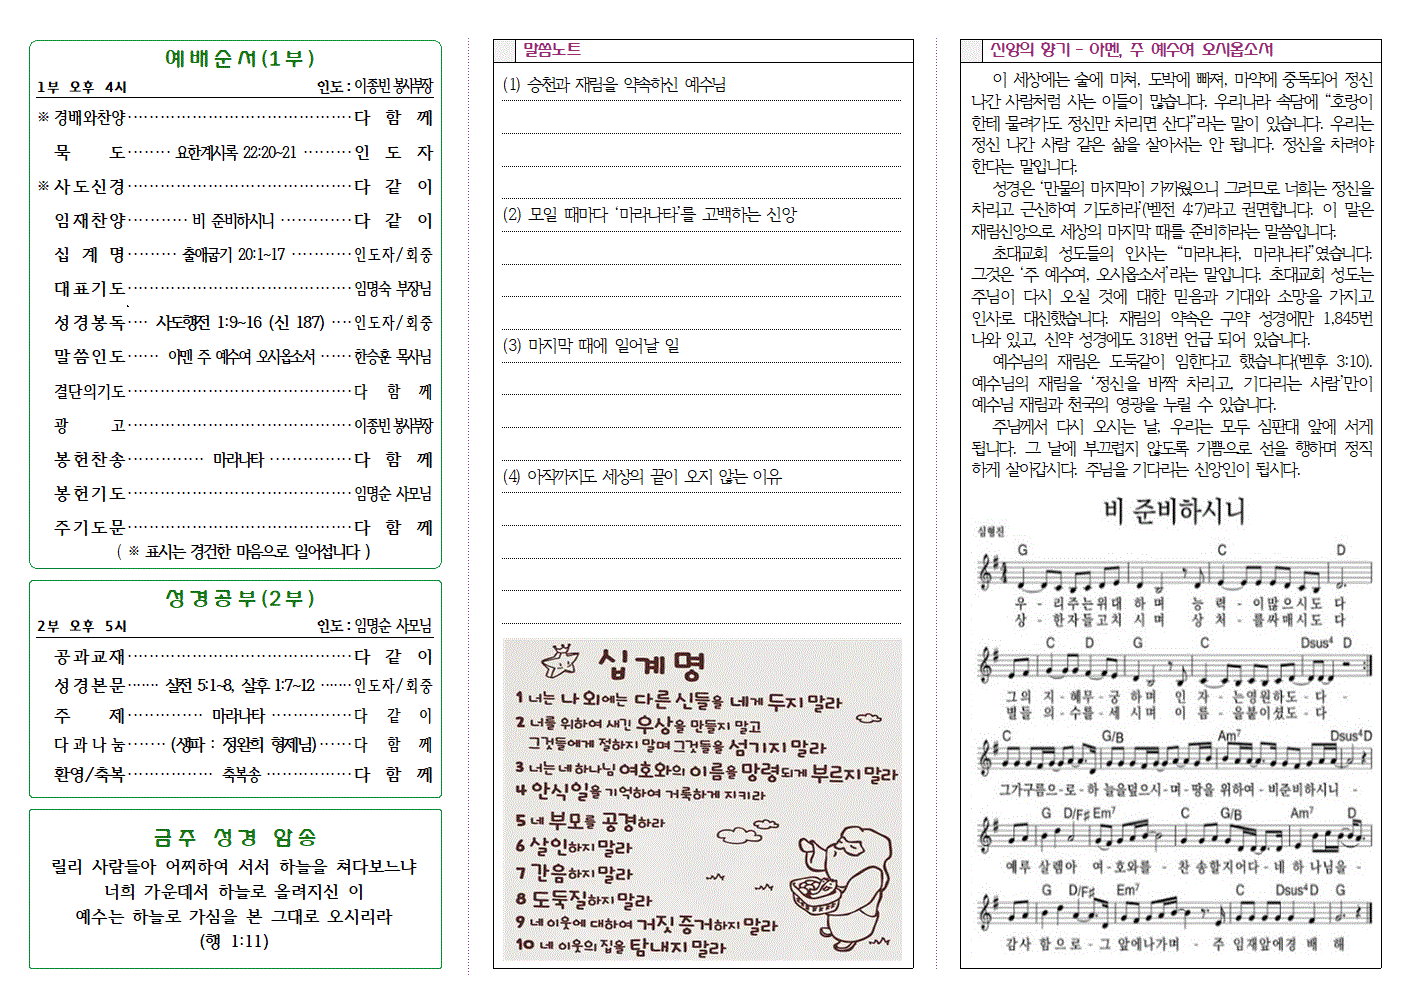 예배순서(1부)
1부 오후 4시 인도 : 이종빈 봉사부장
※ 경배와찬양 다 함 께
묵 도 요한계시록 22:20~21 인 도 자
※ 사도신경 다 같 이
임재찬양 비 준비하시니 다 같 이
십 계 명 출애굽기 20:1~17 인도자/회중
대표기도 임명숙 부장님
성경봉독 사도행전 1:9~16 (신 187) 인도자/회중
말씀인도 아멘 주 예수여 오시옵소서 한승훈 목사님
결단의기도 다 함 께
광 고 이종빈 봉사부장
봉헌찬송 마라나타 다 함 께
봉헌기도 임명순 사모님
주기도문 다 함 께
( ※ 표시는 경건한 마음으로 일어섭니다 )
성경공부(2부)
2부 오후 5시 인도 : 임명순 사모님
공과교재 다 같 이
성경본문 살전 5:1~8, 살후 1:7~12 인도자/회중
주 제 마라나타 다 같 이
다과나눔 (생파 : 정완희 형제님) 다 함 께
환영/축복 축복송 다 함 께
금주 성경 암송
릴리 사람들아 어찌하여 서서 하늘을 쳐다보느냐
너희 가운데서 하늘로 올려지신 이
예수는 하늘로 가심을 본 그대로 오시리라
(행 1:11)
말씀노트
(1) 승천과 재림을 약속하신 예수님
(2) 모일 때마다 ‘마라나타’를 고백하는 신앙
(3) 마지막 때에 일어날 일
(4) 아직까지도 세상의 끝이 오지 않는 이유
십계명
1 너는 나 외에는 다른 신들을 네게 두지 말라
2 너를 위하여 새긴 우상을 만들지 말고
그것들에게 절하지 말며 그것들을 섬기지 말라
3 너는 네 하나님 여호와의 이름을 망령되게 부르지 말라
4 안식일을 기억하여 거룩하게 지키라
5 네 부모를 공경하라
6 살인하지 말라
7 간음하지 말라
8 도둑질하지 말라
9 네 이웃에 대하여 거짓 증거하지 말라
10 네 이웃의 집을 탐내지 말라
신앙의 향기 - 아멘, 주 예수여 오시옵소서
이 세상에는 술에 미쳐, 도박에 빠져, 마약에 중독되어 정신
나간 사람처럼 사는 이들이 많습니다. 우리나라 속담에 “호랑이
한테 물려가도 정신만 차리면 산다”라는 말이 있습니다. 우리는
정신 나간 사람 같은 삶을 살아서는 안 됩니다. 정신을 차려야
한다는 말입니다.
성경은 ‘만물의 마지막이 가까웠으니 그러므로 너희는 정신을
차리고 근신하여 기도하라’(벧전 4:7)라고 권면합니다. 이 말은
재림신앙으로 세상의 마지막 때를 준비하라는 말씀입니다.
초대교회 성도들의 인사는 “마라나타, 마라나타”였습니다.
그것은 ‘주 예수여, 오시옵소서’라는 말입니다. 초대교회 성도는
주님이 다시 오실 것에 대한 믿음과 기대와 소망을 가지고
인사로 대신했습니다. 재림의 약속은 구약 성경에만 1,845번
나와 있고, 신약 성경에도 318번 언급 되어 있습니다.
예수님의 재림은 도둑같이 임한다고 했습니다(벧후 3:10).
예수님의 재림을 ‘정신을 바짝 차리고, 기다리는 사람’만이
예수님 재림과 천국의 영광을 누릴 수 있습니다.
주님께서 다시 오시는 날, 우리는 모두 심판대 앞에 서게
됩니다. 그 날에 부끄럽지 않도록 기쁨으로 선을 행하며 정직
하게 살아갑시다. 주님을 기다리는 신앙인이 됩시다.
비 준비하시니
심형진
G C D
우 - 리주는위대 하 며 능 력 - 이많으시도 다
상 - 한자들고치 시 며 상 처 - 를싸매시도 다
C D G C Dsus4 D
그의 지 - 혜무 - 궁 하며 인 자 - 는영원하도 - 다 -
별들 의 - 수를 - 세 시며 이 름 - 을붙이셨도 - 다
C G/B Am7 Dsus4 D
그가구름으 - 로 - 하 늘을덮으시 - 며 - 땅을 위하여 - 비준비하시니 -
G D/F♯ Em7 C G/B Am7 D
예루 살렘아 여 - 호와를 - 찬 송할지어다 - 네 하 나님을 -
G D/F♯ Em7 C Dsus4 D G
감사 함으로 - 그 앞에나가며 - 주 임재앞에경 배 해